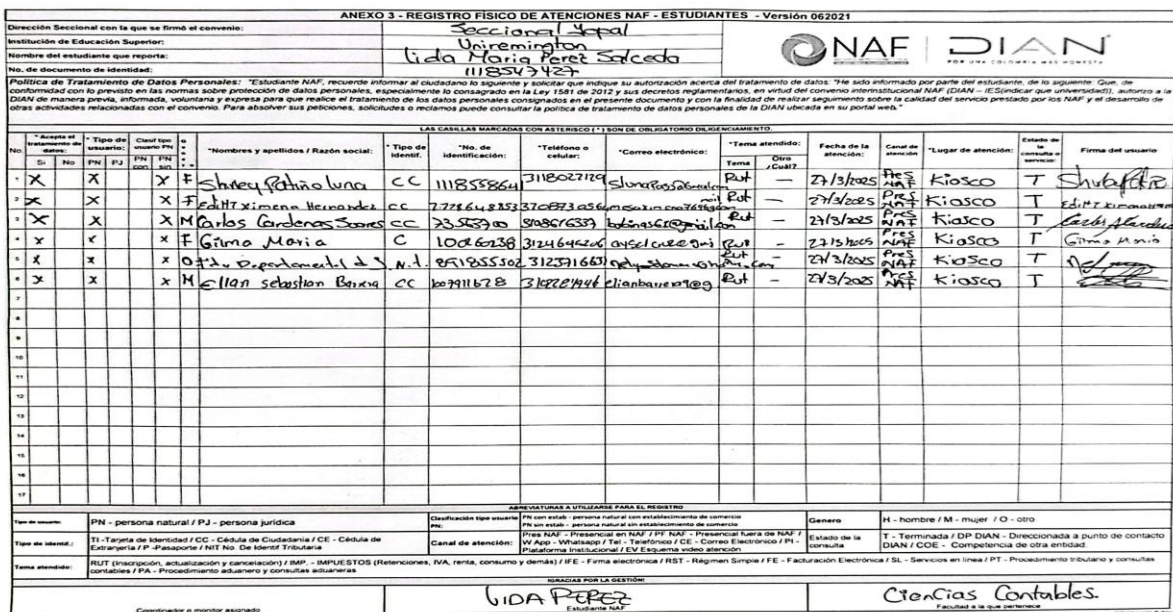 ANEXO 3 - REGISTRO FÍSICO DE ATENCIONES NAF - ESTUDIANTES - Versión 062021
Dirección Seccional con la que se firmó el convenio: Seccional Yopal
Institución de Educación Superior: Uniremington
Nombre del estudiante que reporta: Lida Maria Perez Salcedo
No. de documento de identidad: 1118547427
NAF DIAN
POR UNA COLOMBIA MÁS HONESTA
Política de Tratamiento de Datos Personales: "Estudiante NAF, recuerde informar al ciudadano lo siguiente y solicitar que indique su autorización acerca del tratamiento de datos. "He sido informado por parte del estudiante, de lo siguiente: Que, de
conformidad con lo previsto en las normas sobre protección de datos personales, especialmente lo consagrado en la Ley 1581 de 2012 y sus decretos reglamentarios, en virtud del convenio interinstitucional NAF (DIAN – IES(indicar que universidad)), autorizo a la
DIAN de manera previa, informada, voluntaria y expresa para que realice el tratamiento de los datos personales consignados en el presente documento y con la finalidad de realizar seguimiento sobre la calidad del servicio prestado por los NAF y el desarrollo de
otras actividades relacionadas con el convenio. Para absolver sus peticiones, solicitudes o reclamos puede consultar la política de tratamiento de datos personales de la DIAN ubicada en su portal web."
LAS CASILLAS MARCADAS CON ASTERISCO (*) SON DE OBLIGATORIO DILIGENCIAMIENTO.
No. *Acepta el tratamiento de datos: Si No *Tipo de usuario: PN PJ Clasif tipo usuario PN PN con PN sin *Nombres y apellidos / Razón social: *Tipo de identif. *No. de identificación: *Teléfono o celular: *Correo electrónico: *Tema atendido: Tema Otro ¿Cuál? Fecha de la atención: Canal de atención *Lugar de atención: Estado de la consulta o servicio: Firma del usuario
1 X X X F Shirley Patiño luna CC 1118558641 3118027129 Rut — 27/3/2025 Pres NAF Kiosco T
2 X X X F Edith Ximena Hernandez CC Rut — 27/3/2025 Pres NAF Kiosco T
3 X X X M Carlos Cardenas CC Rut — 27/3/2025 Pres NAF Kiosco T
4 x x x F Gilma Maria C Rut — 27/3/2025 Pres NAF Kiosco T Gilma Maria
5 x x x O Departamental N.t. 891855502 Rut — 27/3/2025 Pres NAF Kiosco T
6 x x x M Elian sebastian CC Rut — 27/3/2025 Pres NAF Kiosco T
7
8
9
10
11
12
13
14
15
16
17
ABREVIATURAS A UTILIZARSE PARA EL REGISTRO
Tipo de usuario: PN - persona natural / PJ - persona jurídica
Clasificación tipo usuario PN: PN con estab - persona natural con establecimiento de comercio
PN sin estab - persona natural sin establecimiento de comercio
Genero H - hombre / M - mujer / O - otro
Tipo de identif.: TI -Tarjeta de Identidad / CC - Cédula de Ciudadania / CE - Cédula de
Extranjeria / P -Pasaporte / NIT No. De Identif Tributaria
Canal de atención: Pres NAF - Presencial en NAF / PF NAF - Presencial fuera de NAF /
W App - Whatsapp / Tel - Telefónico / CE - Correo Electrónico / PI -
Plataforma Institucional / EV Esquema video atención
Estado de la consulta T - Terminada / DP DIAN - Direccionada a punto de contacto
DIAN / COE - Competencia de otra entidad.
Tema atendido: RUT (Inscripción, actualización y cancelación) / IMP. - IMPUESTOS (Retenciones, IVA, renta, consumo y demás) / IFE - Firma electrónica / RST - Régimen Simple / FE - Facturación Electrónica / SL - Servicios en línea / PT - Procedimiento tributario y consultas
contables / PA - Procedimiento aduanero y consultas aduaneras
¡GRACIAS POR LA GESTIÓN!
LIDA PEREZ
CienCias Contables.
Coordinador o monitor asignado
Estudiante NAF
Facultad a la que pertenece